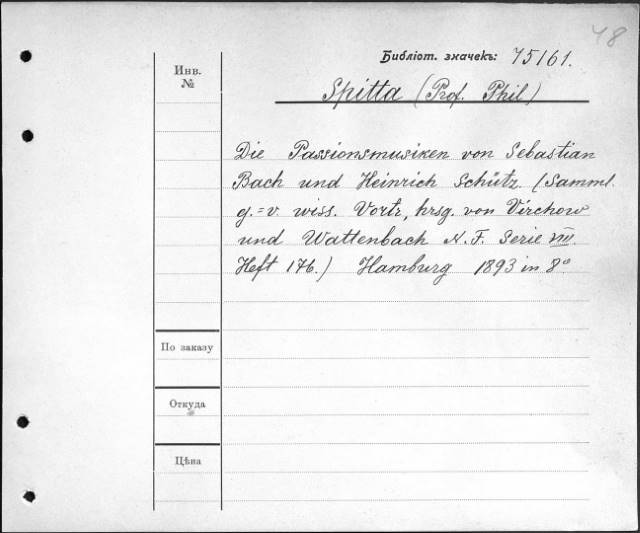 48
Библіот. значекъ: 75161.
Инв.
№
Spitta (Prof. Phil)
Die Passionsmusiken von Sebastian
Bach und Heinrich Schütz. (Samml.
g.=v. wiss. Vortr, hrsg. von Virchow
und Wattenbach N. F. Serie VIII.
Heft 176.) Hamburg 1893 in 8°
По заказу
Откуда
Цѣна